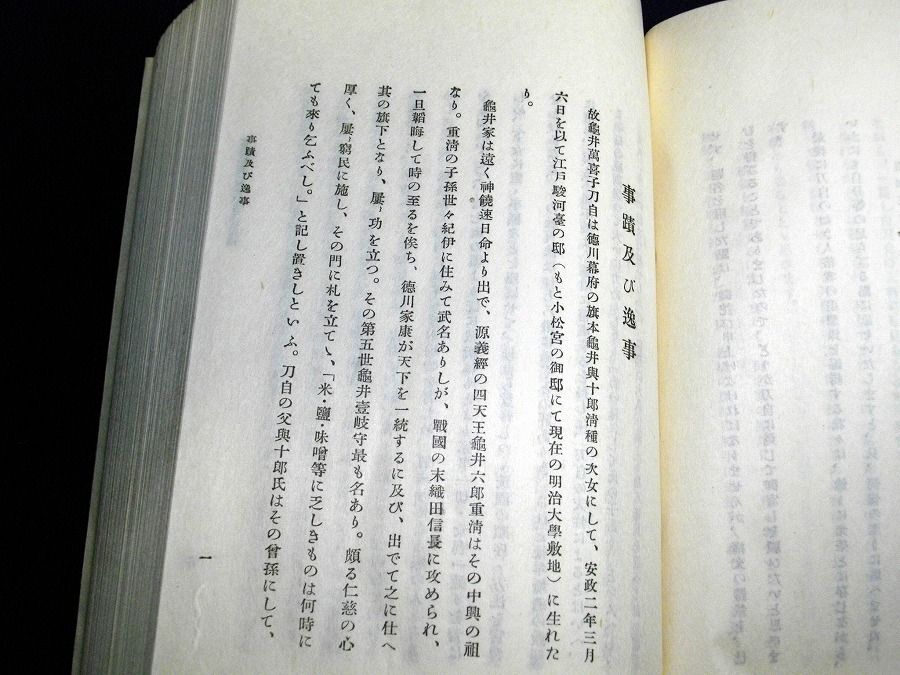 事蹟及び逸事
故龜井萬喜子刀自は德川幕府の旗本龜井與十郎淸種の次女にして、安政二年三月
六日を以て江戸駿河臺の邸（もと小松宮の御邸にて現在の明治大學敷地）に生れた
り。
龜井家は遠く神饒速日命より出で、源義經の四天王龜井六郎重淸はその中興の祖
なり。重淸の子孫世々紀伊に住みて武名ありしが、戰國の末織田信長に攻められ、
一旦韜晦して時の至るを俟ち、德川家康が天下を一統するに及び、出でて之に仕へ
其の旗下となり、屢〻功を立つ。その第五世龜井壹岐守最も名あり。頗る仁慈の心
厚く、屢〻窮民に施し、その門に札を立てゝ、「米・鹽・味噌等に乏しきものは何時に
ても來り乞ふべし。」と記し置きしといふ。刀自の父與十郎氏はその曾孫にして、
事蹟及び逸事
一